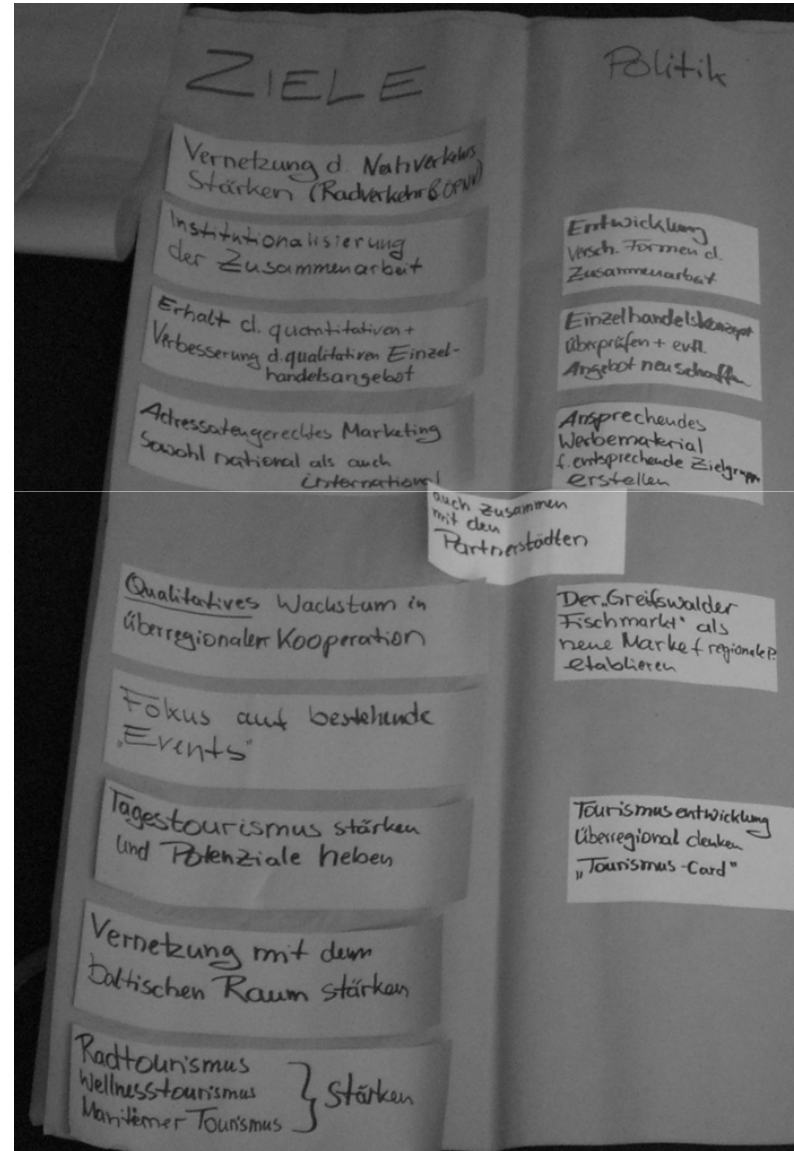 ZIELE
Vernetzung d. Nahverkehrs
stärken (Radverkehr & ÖPNV)
Institutionalisierung
der Zusammenarbeit
Erhalt d. quantitativen +
Verbesserung d. qualitativen Einzel-
handelsangebot
Adressatengerechtes Marketing
sowohl national als auch
international
auch zusammen
mit den
Partnerstädten
Qualitatives Wachstum in
überregionaler Kooperation
Fokus auf bestehende
"Events"
Tagestourismus stärken
und Potenziale heben
Vernetzung mit dem
baltischen Raum stärken
Radtourismus
Wellnesstourismus
Maritimer Tourismus
} stärken
Politik
Entwicklung
versch. Formen d.
Zusammenarbeit
Einzelhandelskonzept
überprüfen + evtl.
Angebot neu schaffen
Ansprechendes
Werbematerial
f. entsprechende Zielgruppe
erstellen
Der "Greifswalder
Fischmarkt" als
neue Marke f regionale P.
etablieren
Tourismusentwicklung
überregional denken
"Tourismus-Card"